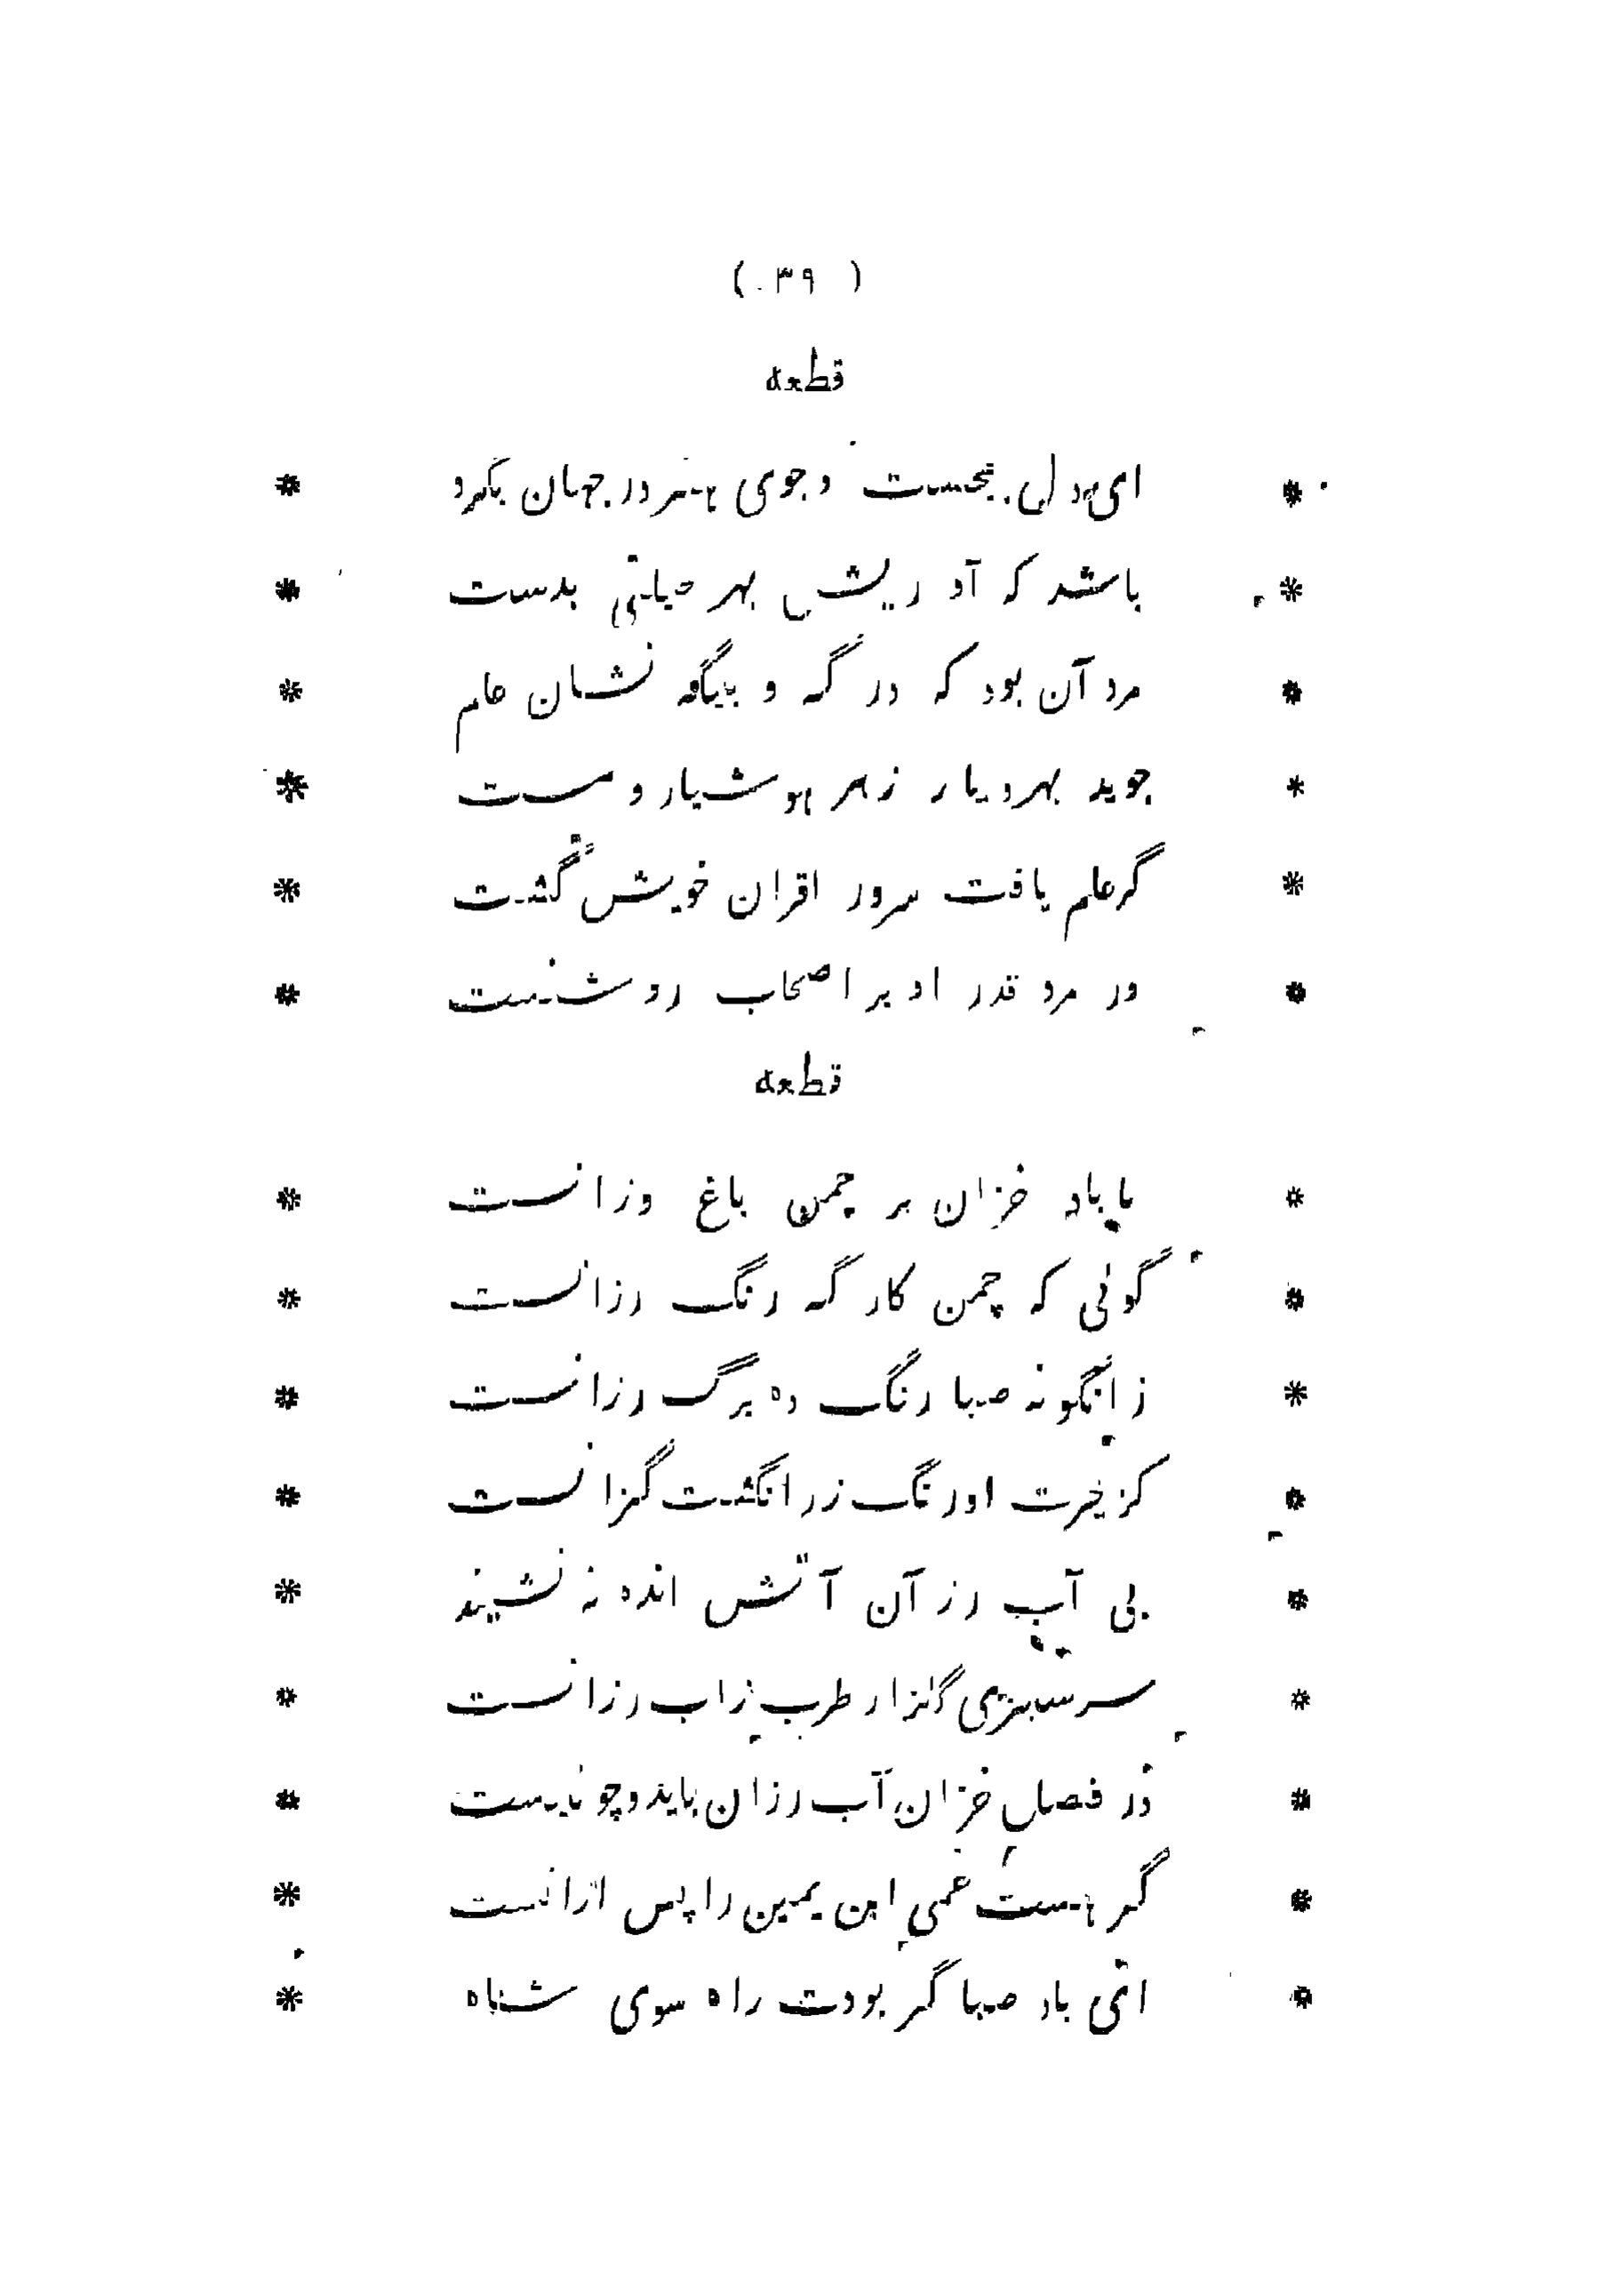 ( ۳۹ )
قطعه
* ای دل بجست و جوی هنر در جهان بگرد *
* باشد که آوریش بهر حیلتی بدست *
* مرد آن بود که در گه و بیگه نشان علم *
* جوید بهر دیار ز هر هوشیار و مست *
* گر علم یافت سرور اقران خویش گشت *
* ور مرد قدر او بر اصحاب روشنست *
قطعه
* تا باد خزان بر چمن باغ وزانست *
* گوئی که چمن کارگه رنگ رزانست *
* زانگونه صبا رنگ ده برگ رزانست *
* کز حیرت او رنگ رز انگشت گزانست *
* بی آب رز آن آتش انده نه نشیند *
* سرسبزی گلزار طرب زاب رزانست *
* در فصل خزان آب رزان باید و چو نیست *
* گر هست غمی ابن یمین را پس ازانست *
* ای باد صبا گر بودت راه سوی شاه *